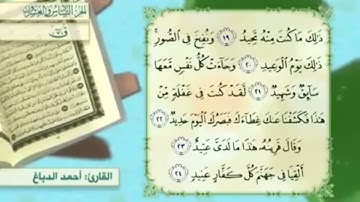 الجزء السادس والعشرون
ق
ذَٰلِكَ مَا كُنتَ مِنْهُ تَحِيدُ ١٩ وَنُفِخَ فِي الصُّورِ
ذَٰلِكَ يَوْمُ الْوَعِيدِ ٢٠ وَجَاءَتْ كُلُّ نَفْسٍ مَّعَهَا
سَائِقٌ وَشَهِيدٌ ٢١ لَّقَدْ كُنتَ فِي غَفْلَةٍ مِّنْ
هَٰذَا فَكَشَفْنَا عَنكَ غِطَاءَكَ فَبَصَرُكَ الْيَوْمَ حَدِيدٌ ٢٢
وَقَالَ قَرِينُهُ هَٰذَا مَا لَدَيَّ عَتِيدٌ ٢٣
أَلْقِيَا فِي جَهَنَّمَ كُلَّ كَفَّارٍ عَنِيدٍ ٢٤
القارئ: أحمد الدباغ